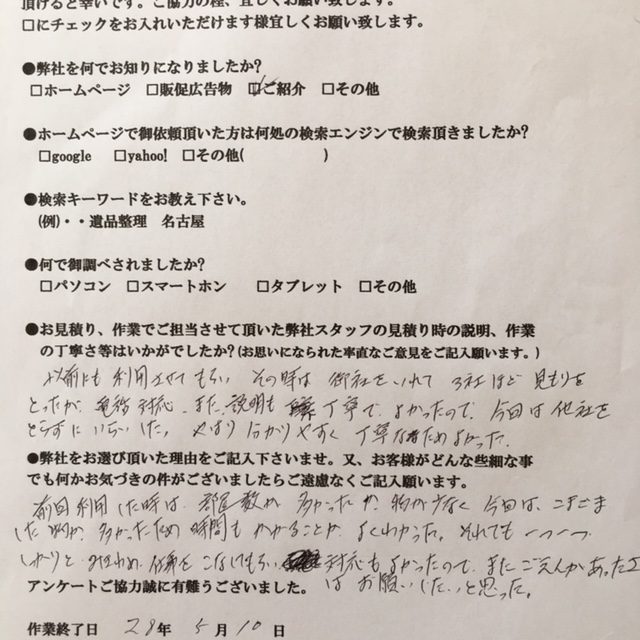 頂けると幸いです。ご協力の程、宜しくお願い致します。
□にチェックをお入れいただけます様宜しくお願い致します。
●弊社を何でお知りになりましたか?
□ホームページ □販促広告物 ☑ご紹介 □その他
●ホームページで御依頼頂いた方は何処の検索エンジンで検索頂きましたか?
□google □yahoo! □その他( )
●検索キーワードをお教え下さい。
(例)・・遺品整理 名古屋
●何で御調べされましたか?
□パソコン □スマートホン □タブレット □その他
●お見積り、作業でご担当させて頂いた弊社スタッフの見積り時の説明、作業
の丁寧さ等はいかがでしたか?(お思いになられた率直なご意見をご記入願います。)
以前にも利用させてもらい その時は 御社をいれて 3社ほど 見もりを
とったが 電話対応、また、説明も 丁寧で よかったので、今回は他社を
とらずに いらいした。やはり 分かりやすく 丁寧なためよかった。
●弊社をお選び頂いた理由をご記入下さいませ。又、お客様がどんな些細な事
でも何かお気づきの件がございましたらご遠慮なくご記入願います。
前回利用した時は、部屋数が 多かったが 物が少なく 今回は、こまごま
した物が 多かったため 時間も かかることが よくわかった。それでも 一つ一つ
しっかりと 仕事を こなしてもらい 対応も よかったので、また ごえんがあった
は お願いしたいと思った。
アンケートご協力誠に有難うございました。
作業終了日 29年 5月 10日